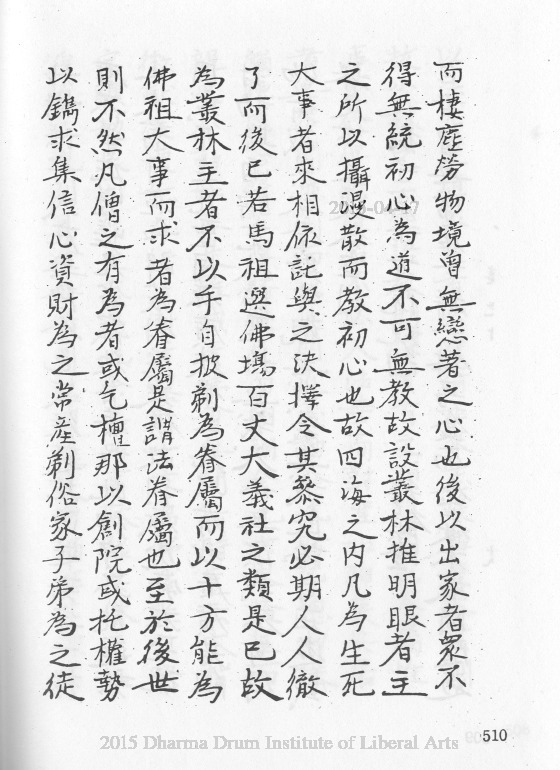 而棲塵勞物境曾無戀著之心也後以出家者眾不
得無統初心為道不可無教故設叢林推明眼者主
之所以攝漫散而教初心也故四海之內凡為生死
大事者來相依託與之決擇令其叅究必期人人徹
了而後已若馬祖選佛場百丈大義社之類是已故
為叢林主者不以手自披剃為眷屬而以十方能為
佛祖大事而求者為眷屬是謂法眷屬也至於後世
則不然凡僧之有為者或乞檀那以創院或托權勢
以鐫求集信心資財為之常產剃俗家子弟為之徒
510
2015 Dharma Drum Institute of Liberal Arts